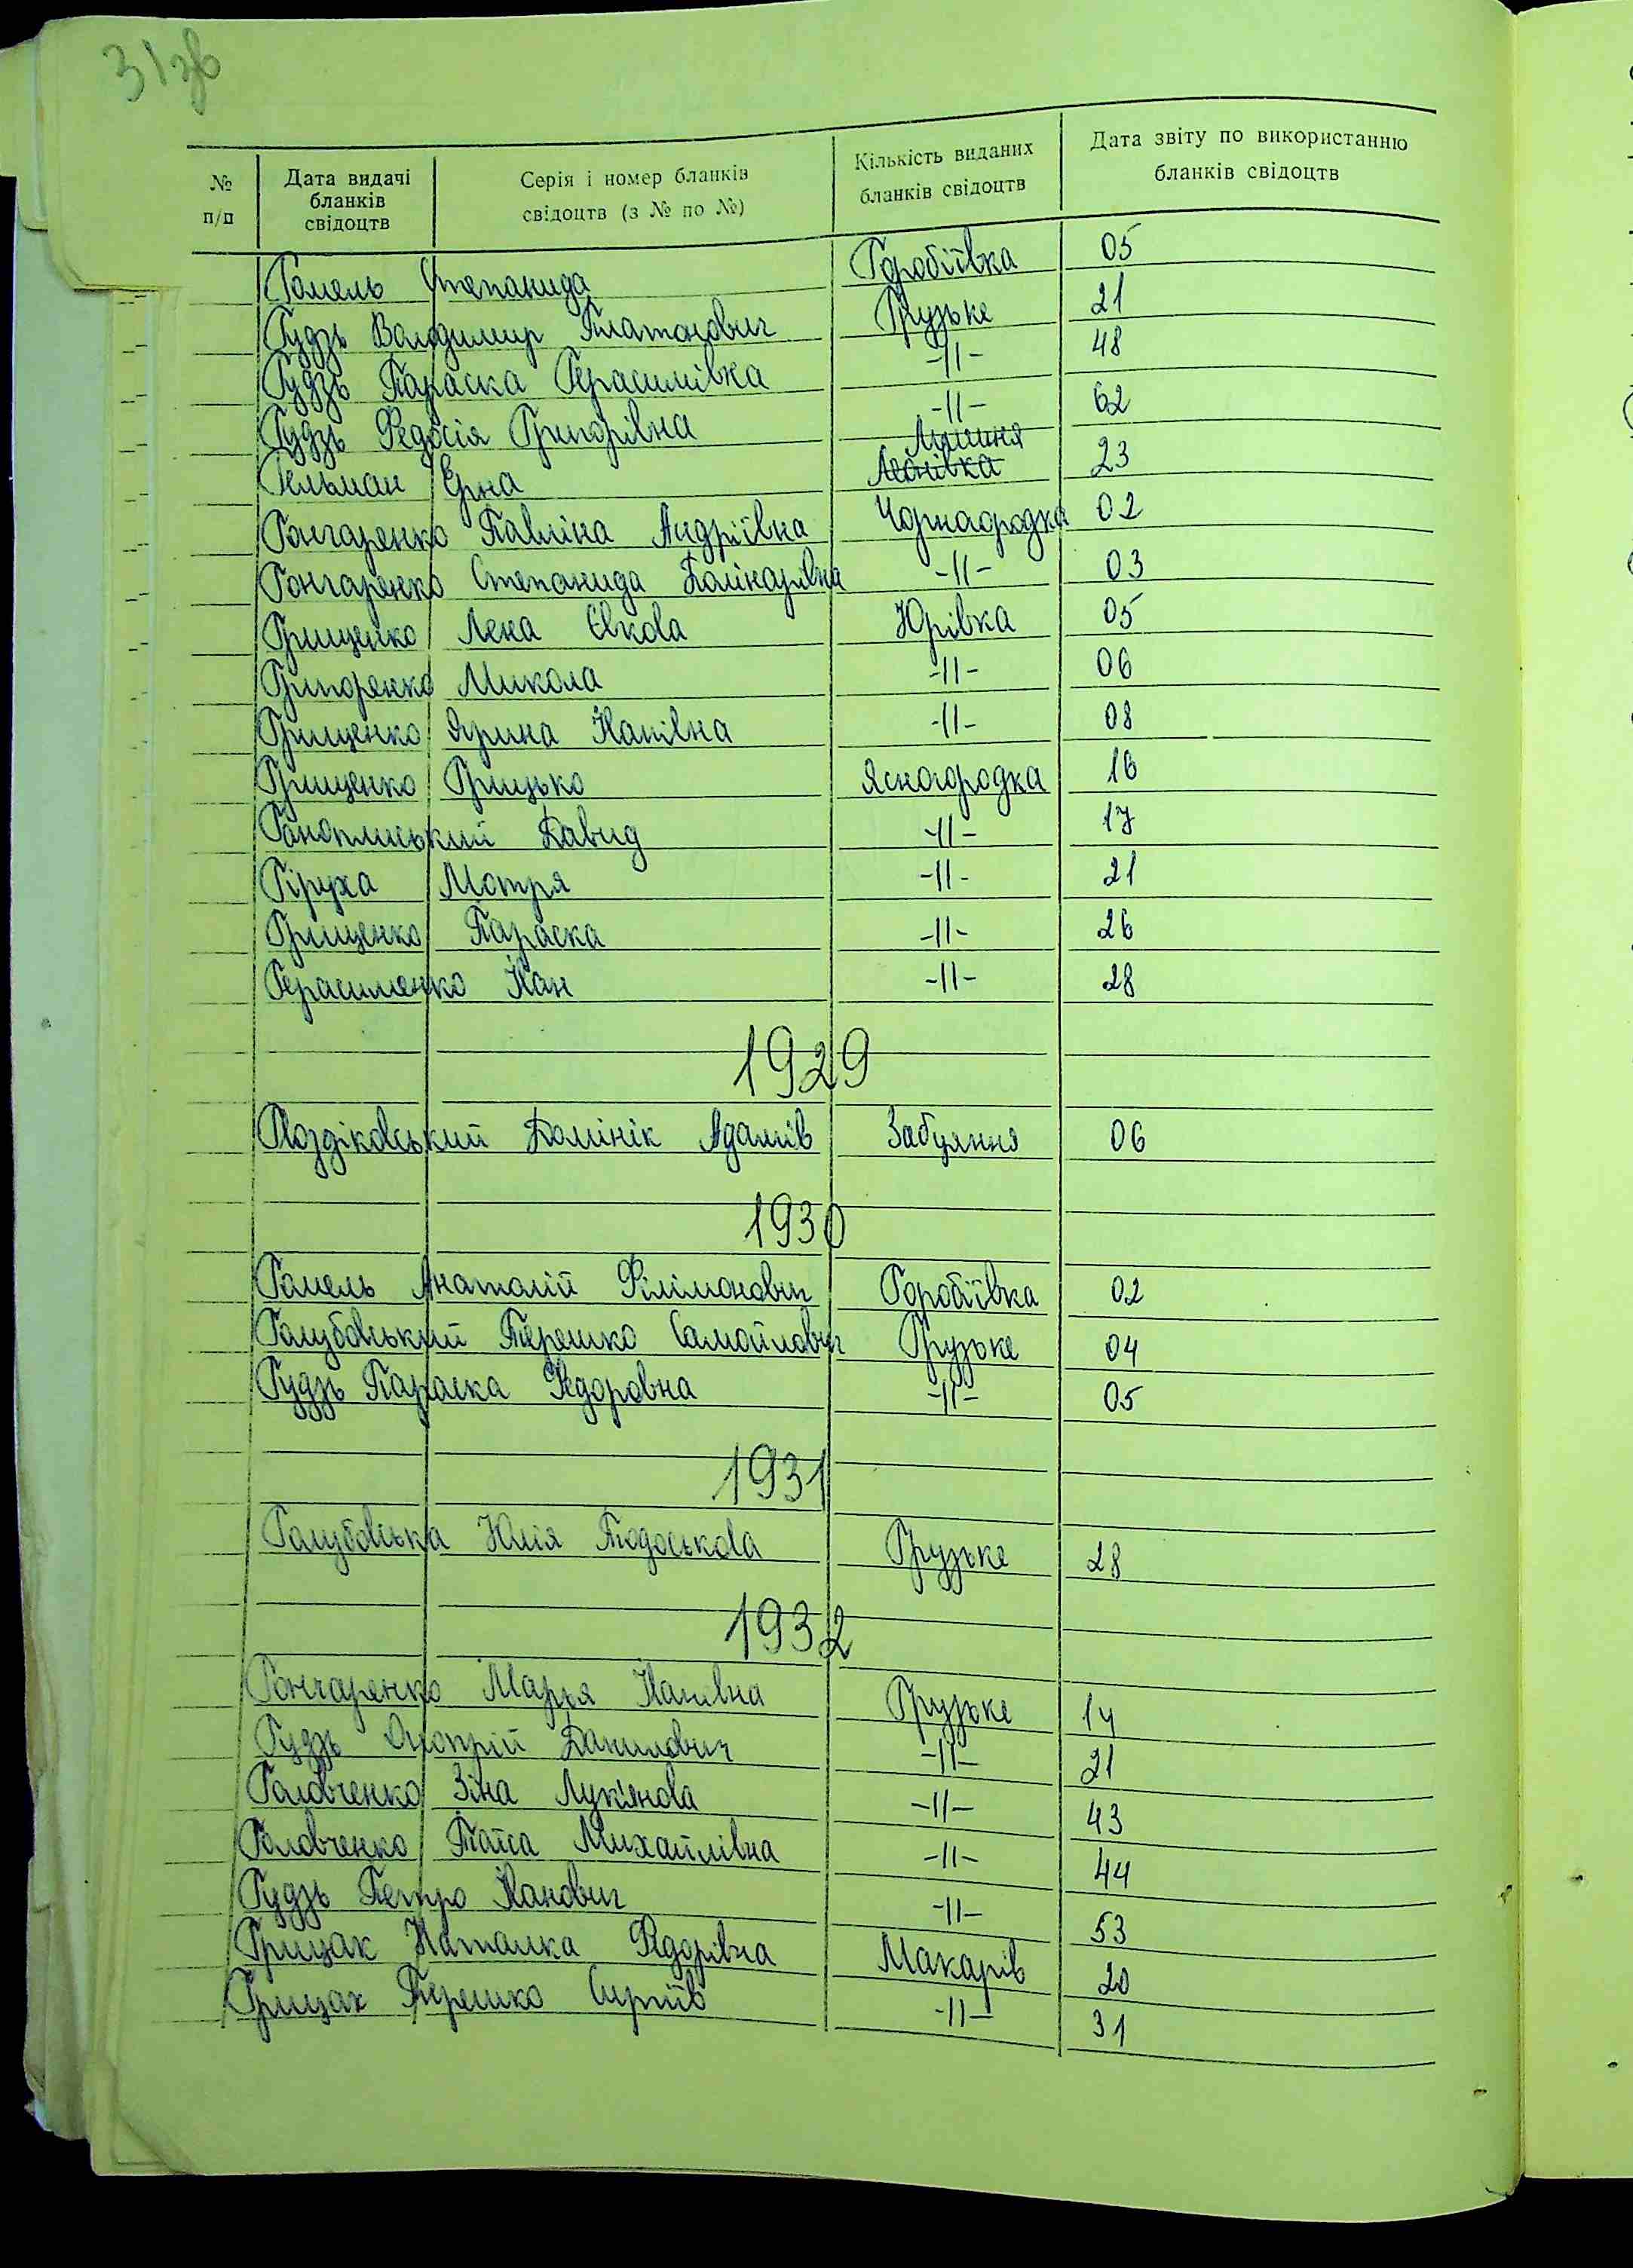 31зв
№ п/п Дата видачі бланків свідоцтв Серія і номер бланків свідоцтв (з № по №) Кількість виданих бланків свідоцтв Дата звіту по використанню бланків свідоцтв
Гомель Степанида Горобіївка 05
Гудзь Володимир Платонович Грузьке 21
Гудзь Параска Герасимівка -11- 48
Гудзь Федосія Григорівна -11- 62
Гельман Ерна Леонівка 23
Гончаренко Павліна Андріївна Чорногородка 02
Гончаренко Степанида Полікарівна -11- 03
Грищенко Лена Євкова Юрівка 05
Григоренко Микола -11- 06
Грищенко Ярина Іванівна -11- 08
Грищенко Грицько Ясногородка 16
Давид -11- 17
Гіруха Мотря -11- 21
Грищенко Параска -11- 26
Герасименко Іван -11- 28
1929
Гвоздіковський Домінік Адамів Забуяння 06
1930
Гомель Анатолій Філімонович Горобіївка 02
Голубовський Терешко Самойлович Грузьке 04
Гудзь Параска Федоровна -11- 05
1931
Голубовська Юлія Тодоськова Грузьке 28
1932
Гончаренко Марія Іванівна Грузьке 14
Гудзь Данилович -11- 21
Головченко Зіна Лук'янова -11- 43
Головченко Таїса Михайлівна -11- 44
Гудзь Петро Іванович -11- 53
Грицак Наталка Федорівна Макарів 20
Грицак Терешко Сергіїв -11- 31